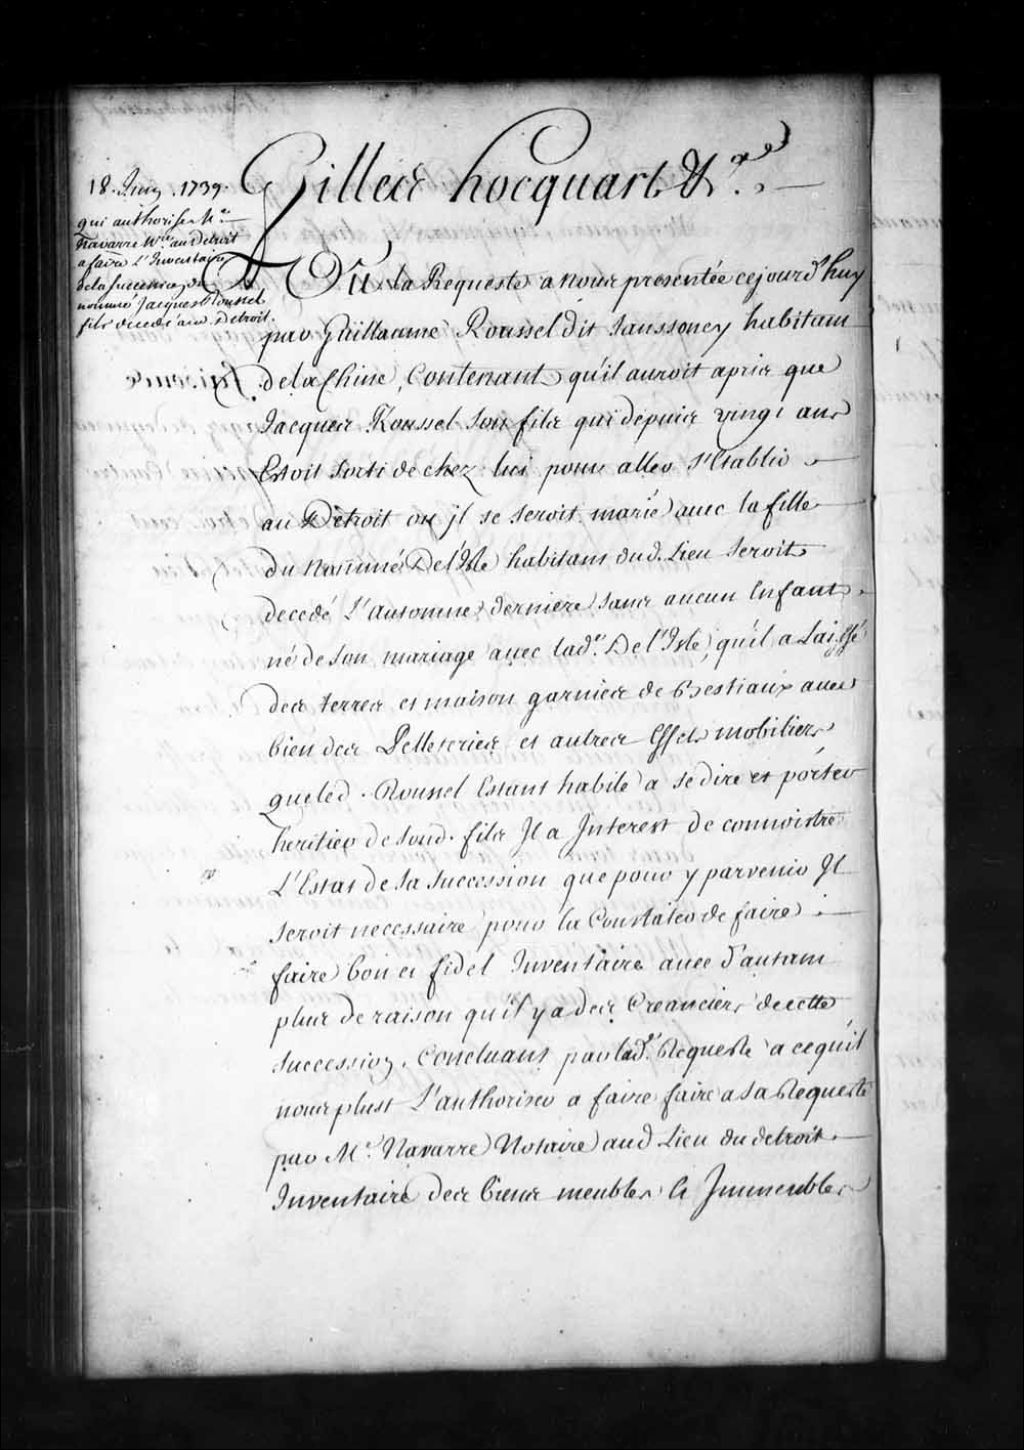 Gilles hocquart &ca.
18. Juin 1739.
qui authorise Mre
Navarre Nre au Detroit
a faire L'Inventaire
de la Succession du
nommé Jacques Roussel
fils decedé aud. Detroit.
Vû la Requeste a nous presentée cejourd'huy
par Guillaume Roussel dit Sanssoucy habitant
de la Chine, Contenant qu'il auroit apris que
Jacques Roussel Son fils qui depuis vingt ans
Estoit Sorti de chez lui pour aller s'Etablir
au Détroit ou jl se seroit marié avec la fille
du Nommé De l'Isle habitant dud. Lieu seroit
decedé L'automne derniere sans aucun Enfant
né de son mariage avec lade. De l'Isle, qu'il a Laissé
des terres et maison garnies de Bestiaux avec
bien des Pelleteries et autres Effets mobiliers
que led. Roussel Estant habile a se dire et porter
heritier de soud. fils Il a Interest de connoistre
L'Estat de sa succession que pour y parvenir Il
seroit necessaire pour la Constater de faire
faire bon et fidel Inventaire avec d'autant
plus de raison qu'il y a des Creanciers de cette
succession, Concluant par lade. Requeste a ce qu'il
nous plust L'authoriser a faire faire a sa Requeste
par Me. Navarre Notaire aud Lieu du detroit
Inventaire des biens meubles & Immeubles